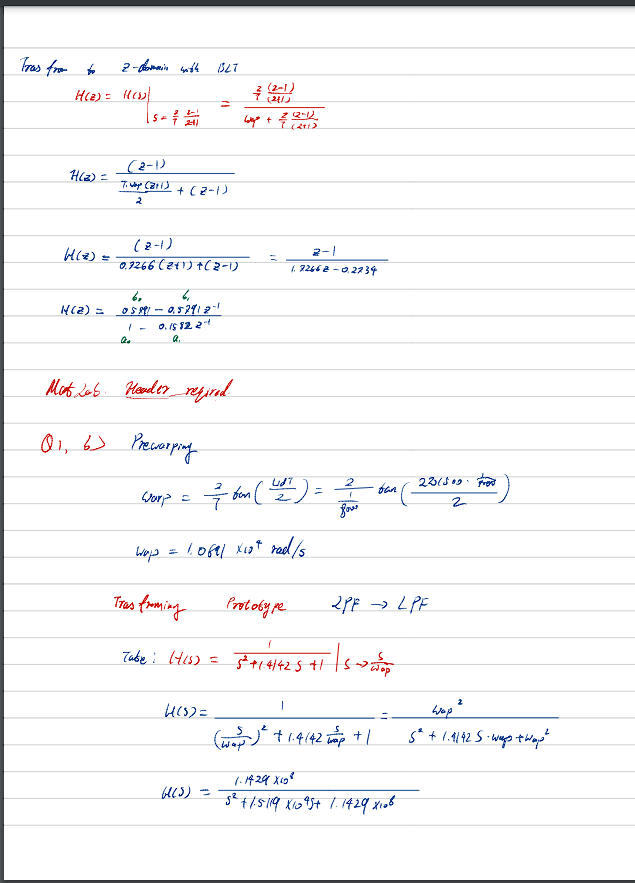 Trasfrom to z-domain with BLT
H(z) = H(s)|s = 2/T (z-1)/(z+1) = (2/T (z-1)/(z+1)) / (wap + 2/T (z-1)/(z+1))
H(z) = (z-1) / (T.wap(z+1)/2 + (z-1))
H(z) = (z-1) / (0.7266(z+1)+(z-1)) = z-1 / (1.7266z - 0.2734)
b₀ b₁
H(z) = (0.5791 - 0.5791z⁻¹) / (1 - 0.1582z⁻¹)
a₀ a₁
MatLab. Header reqired.
Q1, b) Prewarping
warp = 2/T tan(ωdT/2) = 2/(1/8000) tan()
wap = 1.0691 ×10⁴ rad/s
Trasfroming Prototype LPF → LPF
Take: H(s) = 1/(s²+1.4142s+1) | s → s/wap
H(s) = 1/((s/wap)² + 1.4142 s/wap + 1) = wap²/(s² + 1.4142 s·wap + wap²)
H(s) = 1.1429 ×10⁸/(s² + 1.5119 ×10⁴s + 1.1429 ×10⁸)